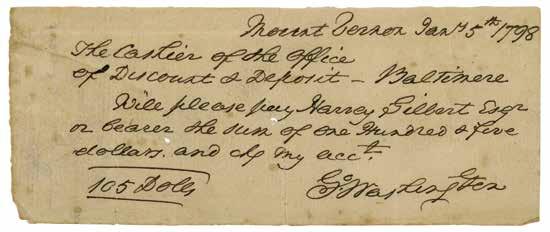 Mount Vernon Jany 5th 1798
The Cashier of the Office
of Discount & Deposit – Baltimere
Will please pay Harvey Gilbert Esqr
or bearer the sum of one Hundred & five
dollars. and chg my acct.
105 Dolls
Go Washington